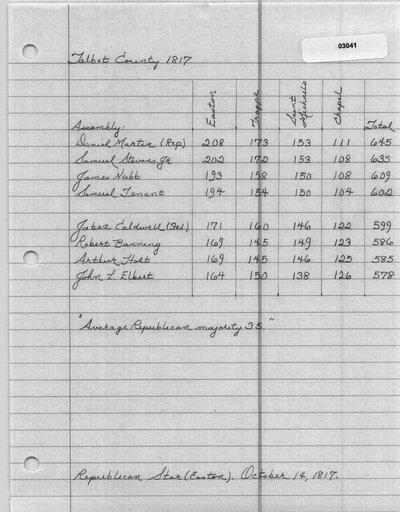 03041
Talbot County 1817
Easton Trappe Saint Michaels Chapel
Assembly: Total
Daniel Martin (Rep) 208 173 153 111 645
Samuel Stevens Jr 202 172 153 108 635
James Nabb 193 158 150 108 609
Samuel Tenant 194 154 150 104 602
Jabez Caldwell (Fed) 171 160 146 122 599
Robert Banning 169 145 149 123 586
Arthur Holt 169 145 146 125 585
John L. Elbert 164 150 138 126 578
"Average Republican majority 35."
Republican Star (Easton). October 14, 1817.